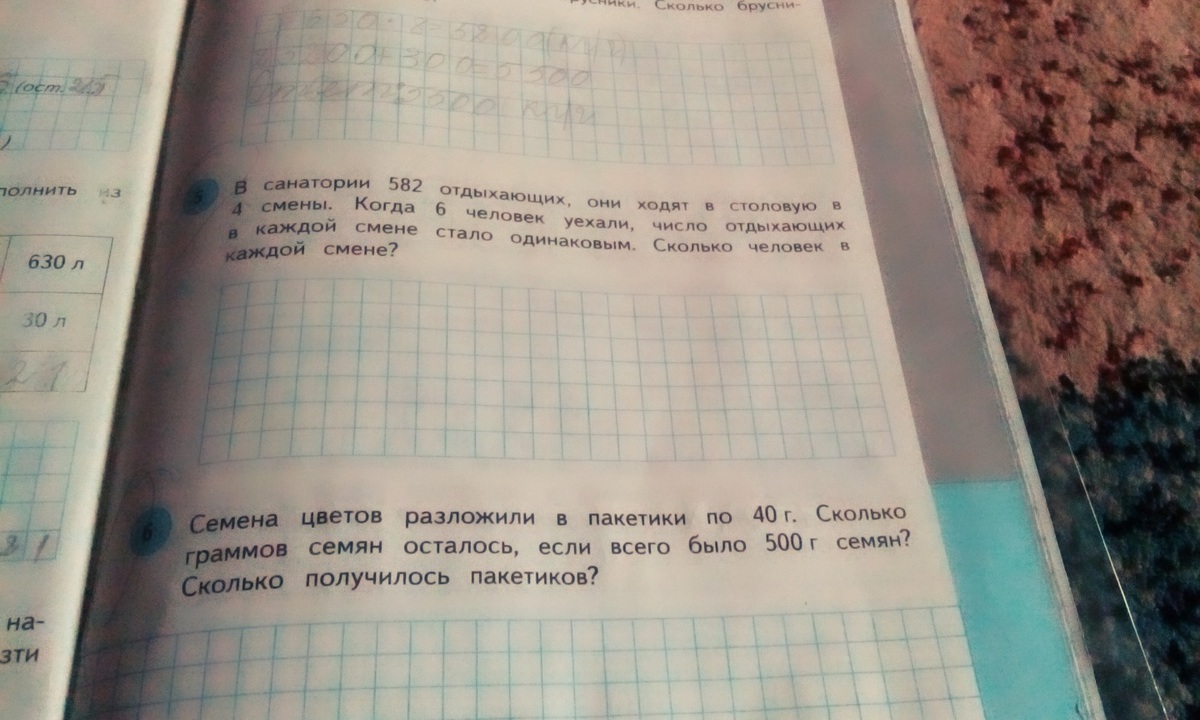 русники. Сколько брусни-
(ост. 25)
полнить из
630 л
30 л
2 1
3 1
на-
зти
5
В санатории 582 отдыхающих, они ходят в столовую в
4 смены. Когда 6 человек уехали, число отдыхающих
в каждой смене стало одинаковым. Сколько человек в
каждой смене?
6
Семена цветов разложили в пакетики по 40 г. Сколько
граммов семян осталось, если всего было 500 г семян?
Сколько получилось пакетиков?